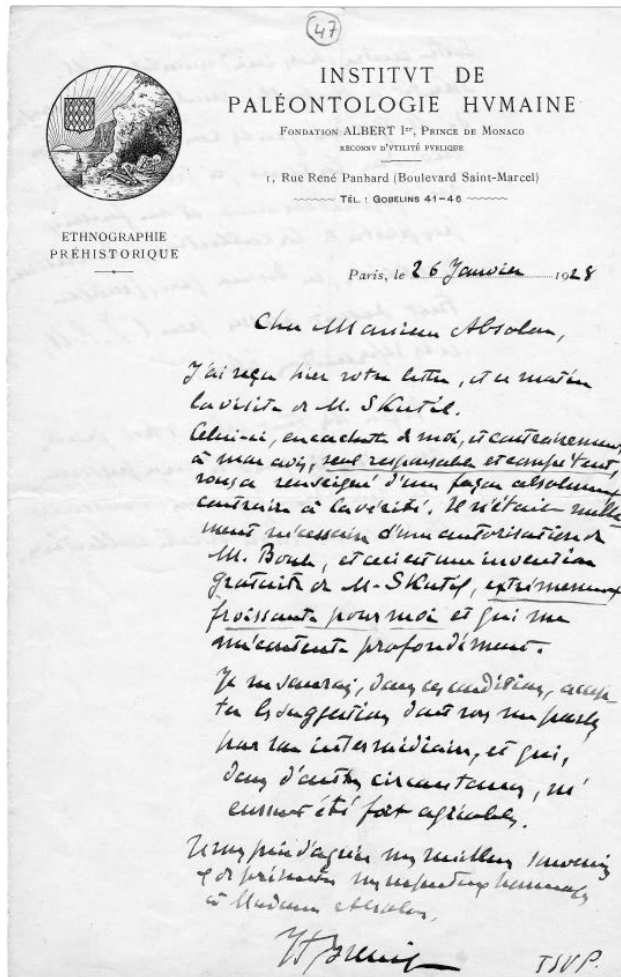 47
INSTITVT DE
PALÉONTOLOGIE HVMAINE
FONDATION ALBERT Ier, PRINCE DE MONACO
RECONNV D'VTILITÉ PVBLIQUE
1, Rue René Panhard (Boulevard Saint-Marcel)
TÉL. : GOBELINS 41-46
ETHNOGRAPHIE
PRÉHISTORIQUE
Paris, le 26 Janvier 1928
Cher Monsieur Absolon,
J'ai reçu hier votre lettre, et ce matin
la visite de M. Skutil.
Celui-ci, en cachette de moi, et contrairement
à mon avis, seul responsable et compétent,
vous a renseigné d'une façon absolument
contraire à la vérité. Il n'était nulle-
ment nécessaire d'une autorisation de
M. Boule, et ceci est une invention
gratuite de M. Skutil, extrêmement
froissante pour moi et qui me
mécontente profondément.
Je ne saurais, dans ces conditions, accep-
ter les suggestions dont vous me parlez
par son intermédiaire, et qui,
dans d'autres circonstances, m'
eussent été fort agréables.
Je vous prie d'agréer mes meilleurs souvenirs
et de présenter mes respectueux hommages
à Madame Absolon.
H Breuil
TSVP.